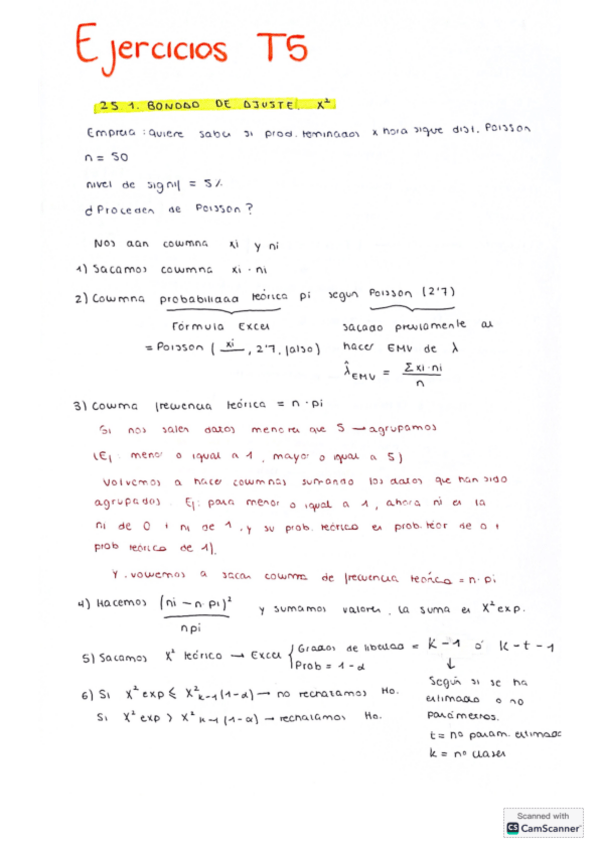 Ejercicios T5
25 1. BONDAD DE AJUSTE. X²
Empresa: quiere saber si prod. terminados x hora sigue dist. Poisson
n = 50
nivel de signif = 5%
¿Proceden de Poisson?
Nos dan columna xi y ni
1) Sacamos columna xi · ni
2) Columna probabilidad teórica pi según Poisson (2'7)
Fórmula Excel
= Poisson ( xi , 2'7, falso)
sacado previamente al
hacer EMV de λ
λ̂EMV = Σxi·ni / n
3) Columna frecuencia teórica = n · pi
Si nos salen datos menores que 5 → agrupamos
(Ej: menor o igual a 1, mayor o igual a 5)
Volvemos a hacer columnas sumando los datos que han sido
agrupados. Ej: para menor o igual a 1, ahora ni es la
ni de 0 + ni de 1, y su prob. teórica es prob. teór de 0 +
prob teórica de 1).
Y volvemos a sacar columna de frecuencia teórica = n · pi
4) Hacemos (ni - n·pi)² / npi y sumamos valores, la suma es X² exp.
5) Sacamos X² teórico → Excel { Grados de libertad = K-1 ó K-t-1
Prob = 1-α
6) Si X² exp ≤ X² k-1 (1-α) → no rechazamos Ho.
Si X² exp > X² k-1 (1-α) → rechazamos Ho.
↓
Según si se ha
estimado o no
parámetros.
t = no param. estimado
k = no clases
Scanned with
CS CamScanner